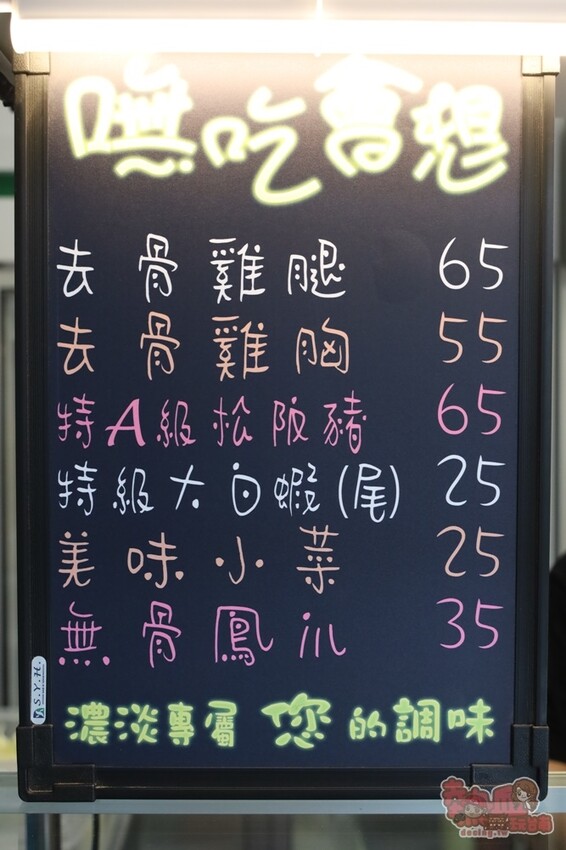 嘸吃會想
去骨雞腿 65
去骨雞胸 55
特A級松阪豬 65
特級大白蝦(尾) 25
美味小菜 25
無骨鳳爪 35
濃淡專屬 您 的調味
S.Y.H.